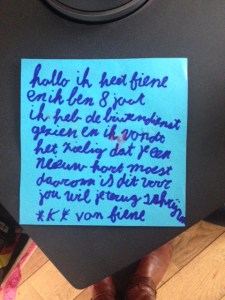 hallo ik heet fiene
en ik ben 8 jaar
ik heb de buitendienst
gezien en ik vondt
het zielig dat je een
nieuw hart moest
daarom is dit voor
jou wil je terug
*K* van fiene